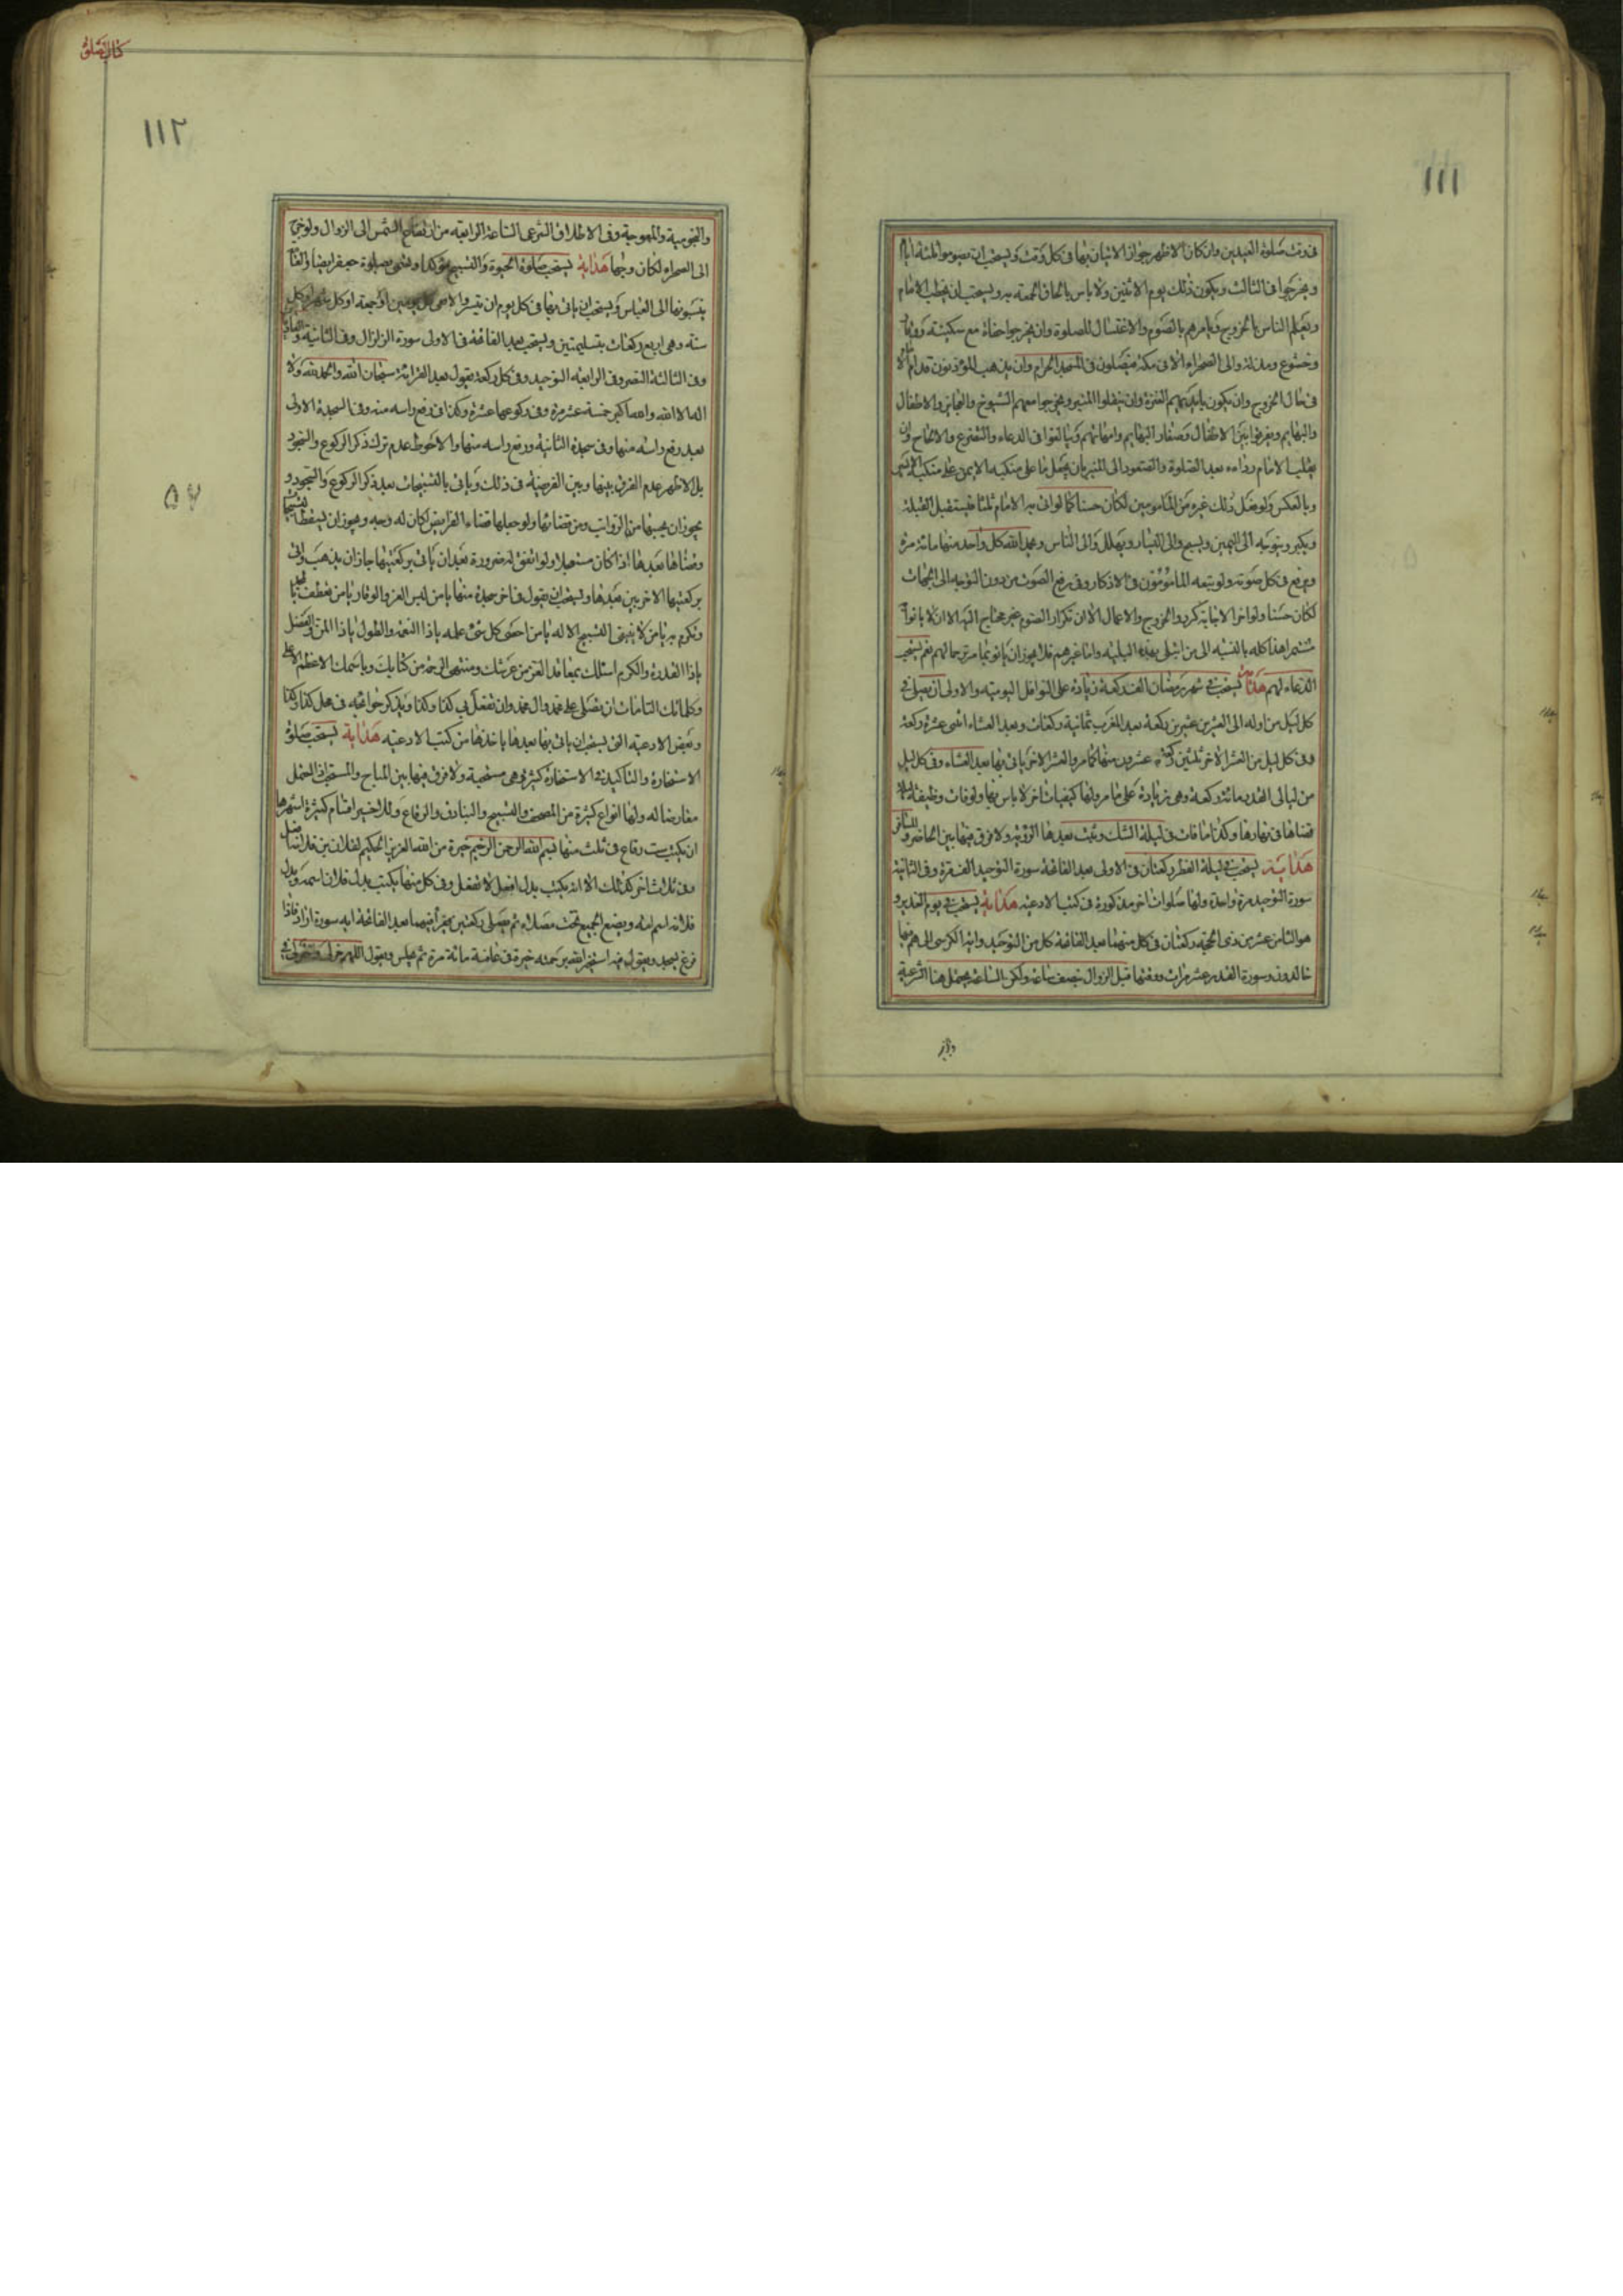 ١١١
فى وقت صلوة العيدين وان كان الاظهر جواز الاتيان بها فى كل وقت ويستحب ان يصوموا ثلثة ايام
ويخرجوا فى الثالث ويكون ذلك يوم الاثنين ولا باس بالحاق الجمعة به ويستحب ان يخطب الامام
ويعلم الناس بالخروج ويامرهم بالصوم والاغتسال للصلوة وان يخرجوا حفاة مع سكينة ووقار
وخشوع ومذلة والى الصحراء الا فى مكة فيصلون فى المسجد الحرام وان يذهب المؤذنون قدام الامام
فى حال الخروج وان يكون بايديهم العنزة وان ينقلوا المنبر ويخرجوا معهم الشيوخ والعجايز والاطفال
والبهايم ويفرقوا بين الاطفال وصغار البهايم وامهاتهم ويبالغوا فى الدعاء والتضرع والالحاح وان
يقلب الامام رداءه بعد الصلوة والصعود الى المنبر بان يجعل ما على منكبه الايمن على منكبه الايسر
وبالعكس ولو فعل ذلك غيره من المامومين لكان حسنا كما لو اتى به الامام ثلثا فيستقبل القبلة
ويكبر ويتوجه الى اليمين ويسبح والى اليسار ويهلل والى الناس ويحمد الله كل واحد منها مائة مرة
ويرفع فى كل صوته ولو تبعه المامومون فى الاذكار وفى رفع الصوت من دون التوجه الى الجهات
لكان حسنا ولو اخر الاجابة كرر والخروج والاعمال الا ان تكرار الصوم غير محتاج اليه الا ان لا ياتوا
مستمرا هذا كله بالنسبة الى من ابتلى بهذه البلية واما غيرهم فلا يجوز ان ياتوا بها مرتوحما لهم نعم يستحب
الدعاء لهم هداية يستحب فى شهر رمضان الف ركعة زيادة على النوافل اليومية والاولى ان يصلى فى
كل ليل من اوله الى العشرين عشرين ركعة بعد المغرب ثمانية ركعات وبعد العشاء اثنى عشرة ركعة
وفى كل ليل من العشر الاخر ثلثين ركعة عشرون منها كما مر والعشر الاخر ياتى بها بعد العشاء وفى كل ليل
من ليالى القدر مائة ركعة وهى زيادة على ما مر ولها كيفيات اخر لا باس بها ولو فات وظيفة ليلة
قضاها فى نهارها وكذا ما فات فى ليلة الشك وثبت بعدها الرؤية ولا فرق فيها بين الحاضر والمسافر
هداية يستحب فى ليلة الفطر ركعتان فى الاولى بعد الفاتحة سورة التوحيد الف مرة وفى الثانية
سورة التوحيد مرة واحدة ولها صلوات اخر مذكورة فى كتب الادعية هداية يستحب فى يوم الغدير و
هو الثامن عشر من ذى الحجة ركعتان فى كل منهما بعد الفاتحة كل من التوحيد واية الكرسى الى هم فيها
خالدون وسورة القدر عشر مرات ووقتها قبل الزوال بنصف ساعة ولكن الساعة يحتمل هنا الشرعية
كتاب الصلوة
١١٢
والنجومية والمعوجة وفى الاطلاق الشرعى الساعة الرابعة من ارتفاع الشمس الى الزوال ولو خرج
الى الصحراء لكان وجها هداية يستحب صلوة الحبوة والتسبيح مؤكدا وتسمى بصلوة جعفر ايضا والعامة
ينسبونها الى العباس ويستحب ان ياتى بها فى كل يوم ان تيسر والا ففى كل يومين او جمعة او كل شهر او كل
سنة وهى اربع ركعات بتسليمتين ويستحب بعد الفاتحة فى الاولى سورة الزلزال وفى الثانية والعاديات
وفى الثالثة النصر وفى الرابعة التوحيد وفى كل ركعة يقول بعد القرائة سبحان الله والحمد لله ولا
اله الا الله والله اكبر خمسة عشر مرة وفى ركوعها عشرة وكذا فى رفع راسه منه وفى السجدة الاولى
بعد رفع راسه منها وفى سجدة الثانية ورفع راسه منها والاحوط عدم ترك ذكر الركوع والسجود
بل الاظهر عدم الفرق بينها وبين الفريضة فى ذلك وياتى بالتسبيحات بعد ذكر الركوع والسجود و
يجوز ان يحسبها من الرواتب ومن قضائها ولو جعلها قضاء الفرايض لكان له وجه ويجوز ان يسقط تسبيحها
وقضاها بعدها اذا كان مستعجلا ولو اتفق له ضرورة بعد ان ياتى بركعتيها جاز ان يذهب واتى
بركعتيها الاخريين بعدها ويستحب ان يقول فى اخر سجدة منها يا من لبس العز والوقار يا من تعطف بالمجد
وتكرم به يا من لا ينبغى التسبيح الا له يا من احصى كل شئ علمه يا ذا النعمة والطول يا ذا المن والفضل
يا ذا القدرة والكرم اسئلك بمعاقد العز من عرشك ومنتهى الرحمة من كتابك وباسمك الاعظم الاعلى
وكلماتك التامات ان تصلى على محمد وال محمد وان تفعل بى كذا وكذا ويذكر حوائجه فى محل كذا وكذا
وبعض الادعية التى يستحب ان ياتى بها بعدها ياخذها من كتب الادعية هداية يستحب صلوة
الاستخارة والتاكيد فى الاستخارة كثير وهى مستحبة ولا فرق فيها بين المباح والمستحب اذا احتمل
معارضا له ولها انواع كثيرة من المصحف والتسبيح والبنادق والرقاع وللاخير اقسام كثيرة اشهرها
ان يكتب ست رقاع فى ثلث منها بسم الله الرحمن الرحيم خيرة من الله العزيز الحكيم لفلان بن فلانة افعل
وفى ثلاث اخر كذلك الا انه يكتب بدل افعل لا تفعل وفى كل منها يكتب بدل فلان اسمه وبدل
فلانه اسم امه ويضع الجميع تحت مصلاه ثم يصلى ركعتين يقرأ فيهما بعد الفاتحة ايه سورة اراد فاذا
فرغ يسجد ويقول فيه استخير الله برحمته خيرة فى عافية مائة مرة ثم يجلس ويقول اللهم خر لى واختر لى فى
٥٦